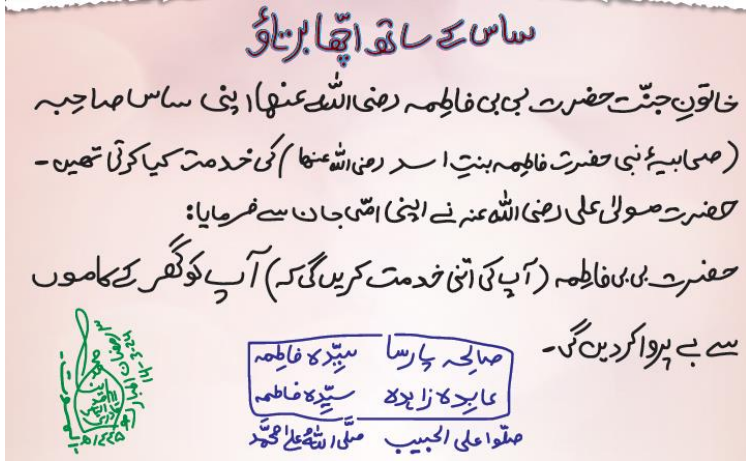 ساس کے ساتھ اچّھا برتاؤ
خاتونِ جنّت حضرت بی بی فاطِمہ رضی اللہ عنھا اپنی ساس صاحِبہ
(صحابیۂ نبی حضرت فاطِمہ بنتِ اسد رضی اللہ عنھا) کی خدمت کیا کرتی تھیں۔
حضرت مولیٰ علی رضی اللہ عنہ نے اپنی امّی جان سے فرمایا:
حضرت بی بی فاطِمہ (آپ کی اتنی خدمت کریں گی کہ) آپ کو گھر کے کاموں
سے بے پروا کر دیں گی۔
صالِحہ پارسا سیِّدہ فاطِمہ
عابِدہ زاہِدہ سیِّدہ فاطمہ
صلّوا علی الحبیب صلَّی اللہُ علیٰ محمَّد